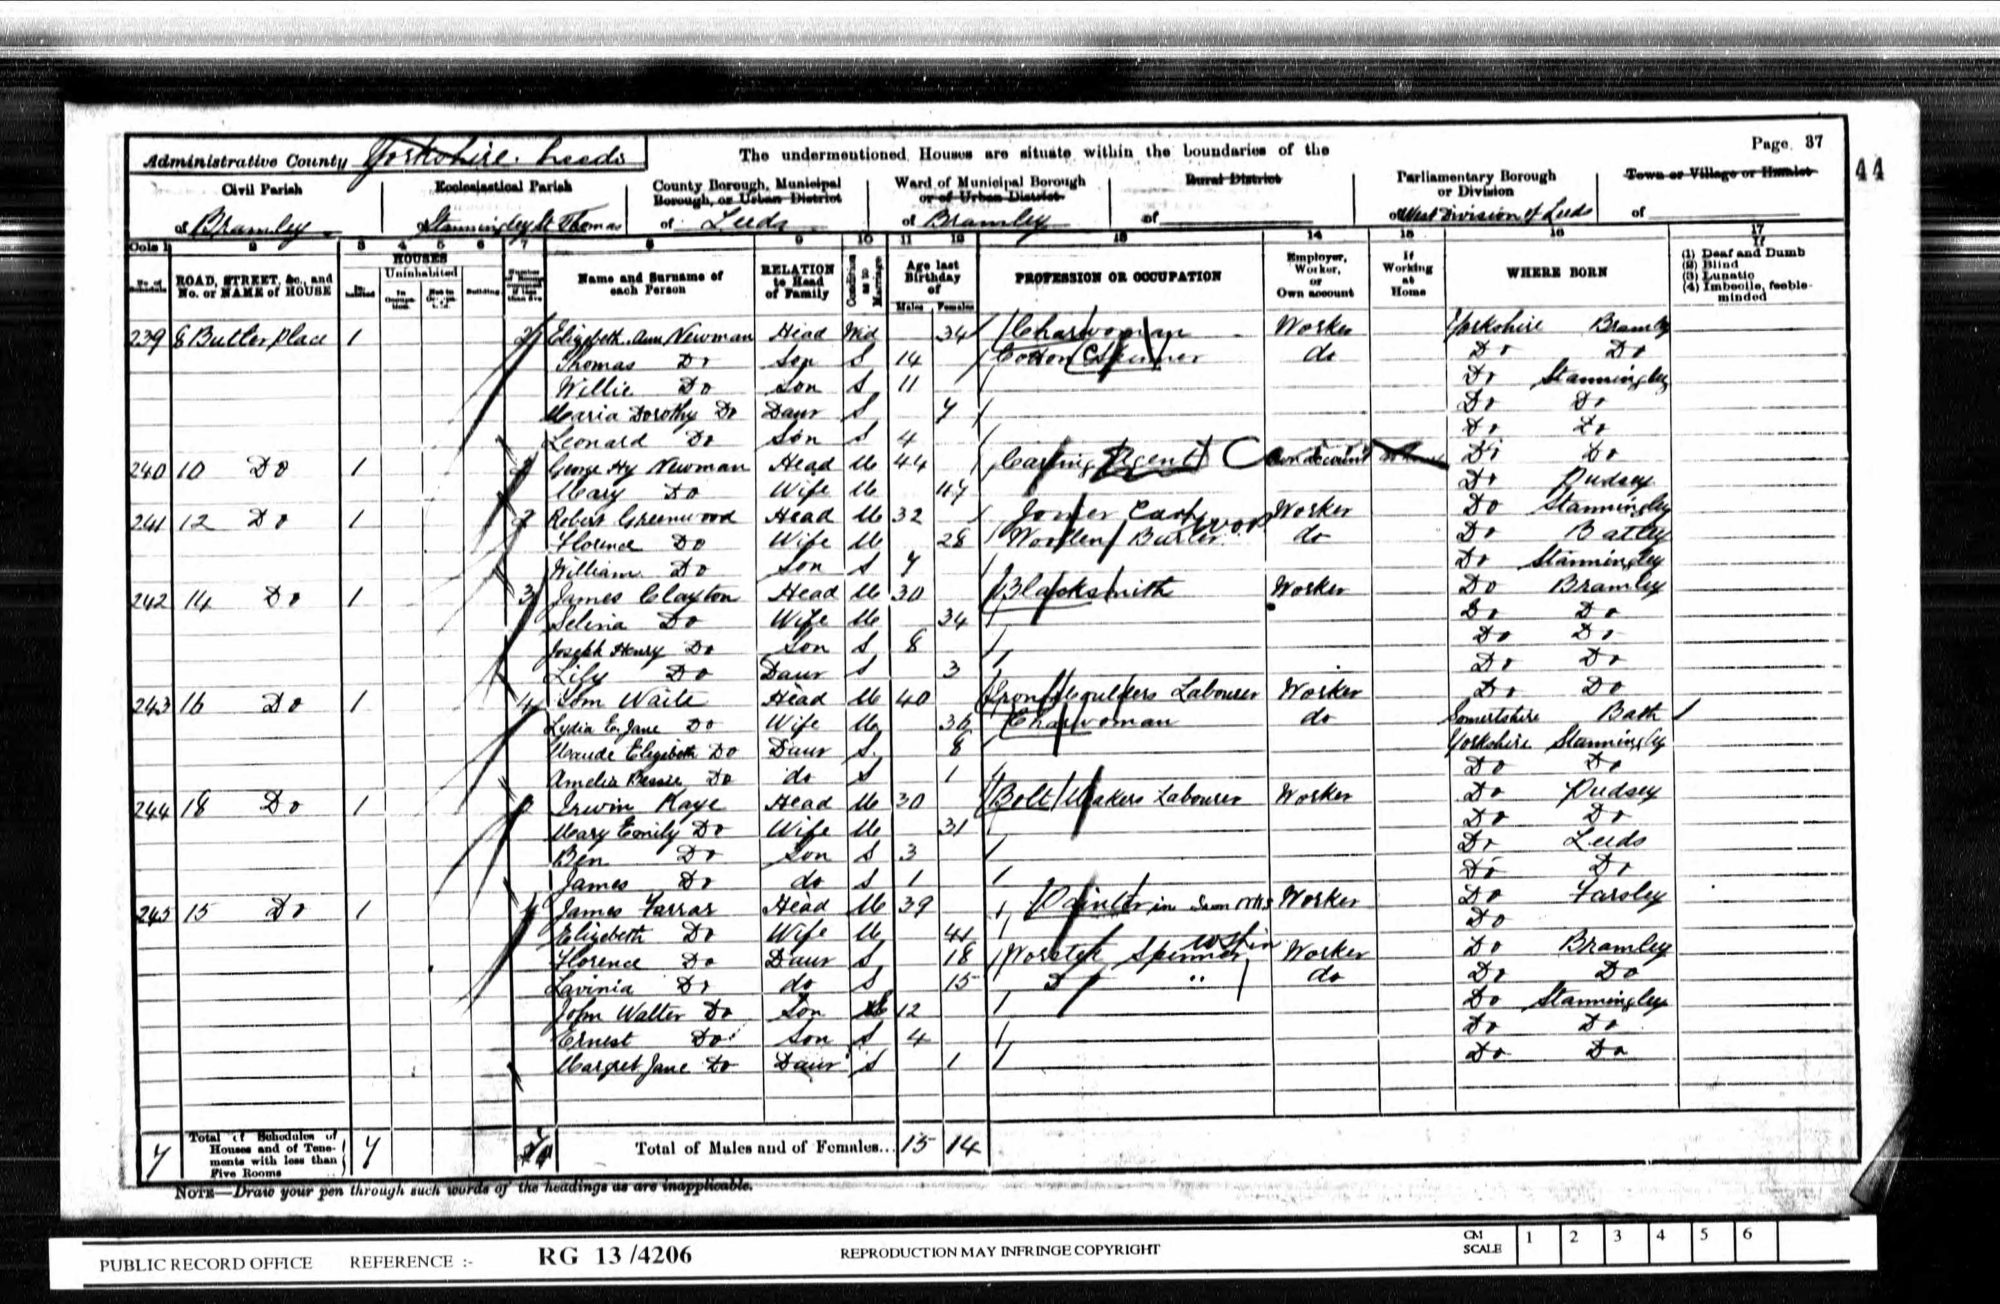 Page 37
44
Administrative County Yorkshire. Leeds
The undermentioned Houses are situate within the boundaries of the
Civil Parish
of Bramley
Ecclesiastical Parish
Stanningley St Thomas
County Borough, Municipal Borough, or Urban District
of Leeds
Ward of Municipal Borough or of Urban District
of Bramley
Rural District
of
Parliamentary Borough or Division
of West Division of Leeds
Town or Village or Hamlet
of
Cols 1 2 3 4 5 6 7 8 9 10 11 12 13 14 15 16 17
No. of Schedule
ROAD, STREET, &c., and No. or NAME of HOUSE
HOUSES
Inhabited
Uninhabited
In Occupation.
Not in Occupation.
Building
Number of Rooms occupied if less than five
Name and Surname of each Person
RELATION to Head of Family
Condition as to Marriage
Age last Birthday of
Males Females
PROFESSION OR OCCUPATION
Employer, Worker, or Own account
If Working at Home
WHERE BORN
If
(1) Deaf and Dumb
(2) Blind
(3) Lunatic
(4) Imbecile, feeble-minded
239 8 Butler Place 1 2 Elizabeth Ann Newman Head Wid 34 Charwoman Worker Yorkshire Bramley
Thomas Do Son S 14 Cotton Spinner do Do Do
Willie Do Son S 11 Do Stanningley
Maria Dorothy Do Daur S 7 Do Do
Leonard Do Son S 4 Do Do
240 10 Do 1 George Hy Newman Head M 44 Agent Own account At Home Do Do
Mary Do Wife M 47 Do Pudsey
241 12 Do 1 2 Robert Greenwood Head M 32 Joiner Worker Do Stanningley
Florence Do Wife M 28 Woollen Burler do Do Batley
William Do Son S 7 Do Stanningley
242 14 Do 1 3 James Clayton Head M 30 Blacksmith Worker Do Bramley
Selina Do Wife M 34 Do Do
Joseph Henry Do Son S 8 Do Do
Lily Do Daur S 3 Do Do
243 16 Do 1 4 Tom Waite Head M 40 Iron Moulders Labourer Worker Do Do
Lydia E. Jane Do Wife M 36 Charwoman do Somertshire Bath
Maude Elizabeth Do Daur S 8 Yorkshire Stanningley
Amelia Bessie Do do S 1 Do Do
244 18 Do 1 Irwin Kaye Head M 30 Bolt Makers Labourer Worker Do Pudsey
Mary Emily Do Wife M 31 Do Do
Ben Do Son S 3 Do Leeds
James Do do S 1 Do Do
245 15 Do 1 James Farrar Head M 39 in Iron Wks Worker Do Farsley
Elizabeth Do Wife M 41 Do
Florence Do Daur S 18 Worsted Spinner Worker Do Bramley
Lavinia Do do S 15 D " do Do Do
John Walter Do Son 12 Do Stanningley
Ernest Do Son S 4 Do Do
Margret Jane Do Daur S 1 Do Do
7 Total of Schedules of Houses and of Tenements with less than Five Rooms 7
Total of Males and of Females... 15 14
NOTE—Draw your pen through such words of the headings as are inapplicable.
PUBLIC RECORD OFFICE REFERENCE :- RG 13/4206 REPRODUCTION MAY INFRINGE COPYRIGHT CM SCALE 1 2 3 4 5 6